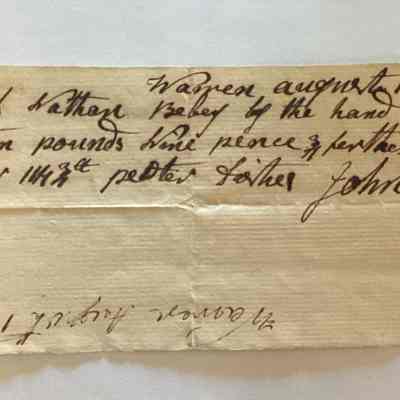 Warren august
Nathan Bebey by the hand
pounds Nine pence 3/4 farthe
pr Disher John
Warren August 1